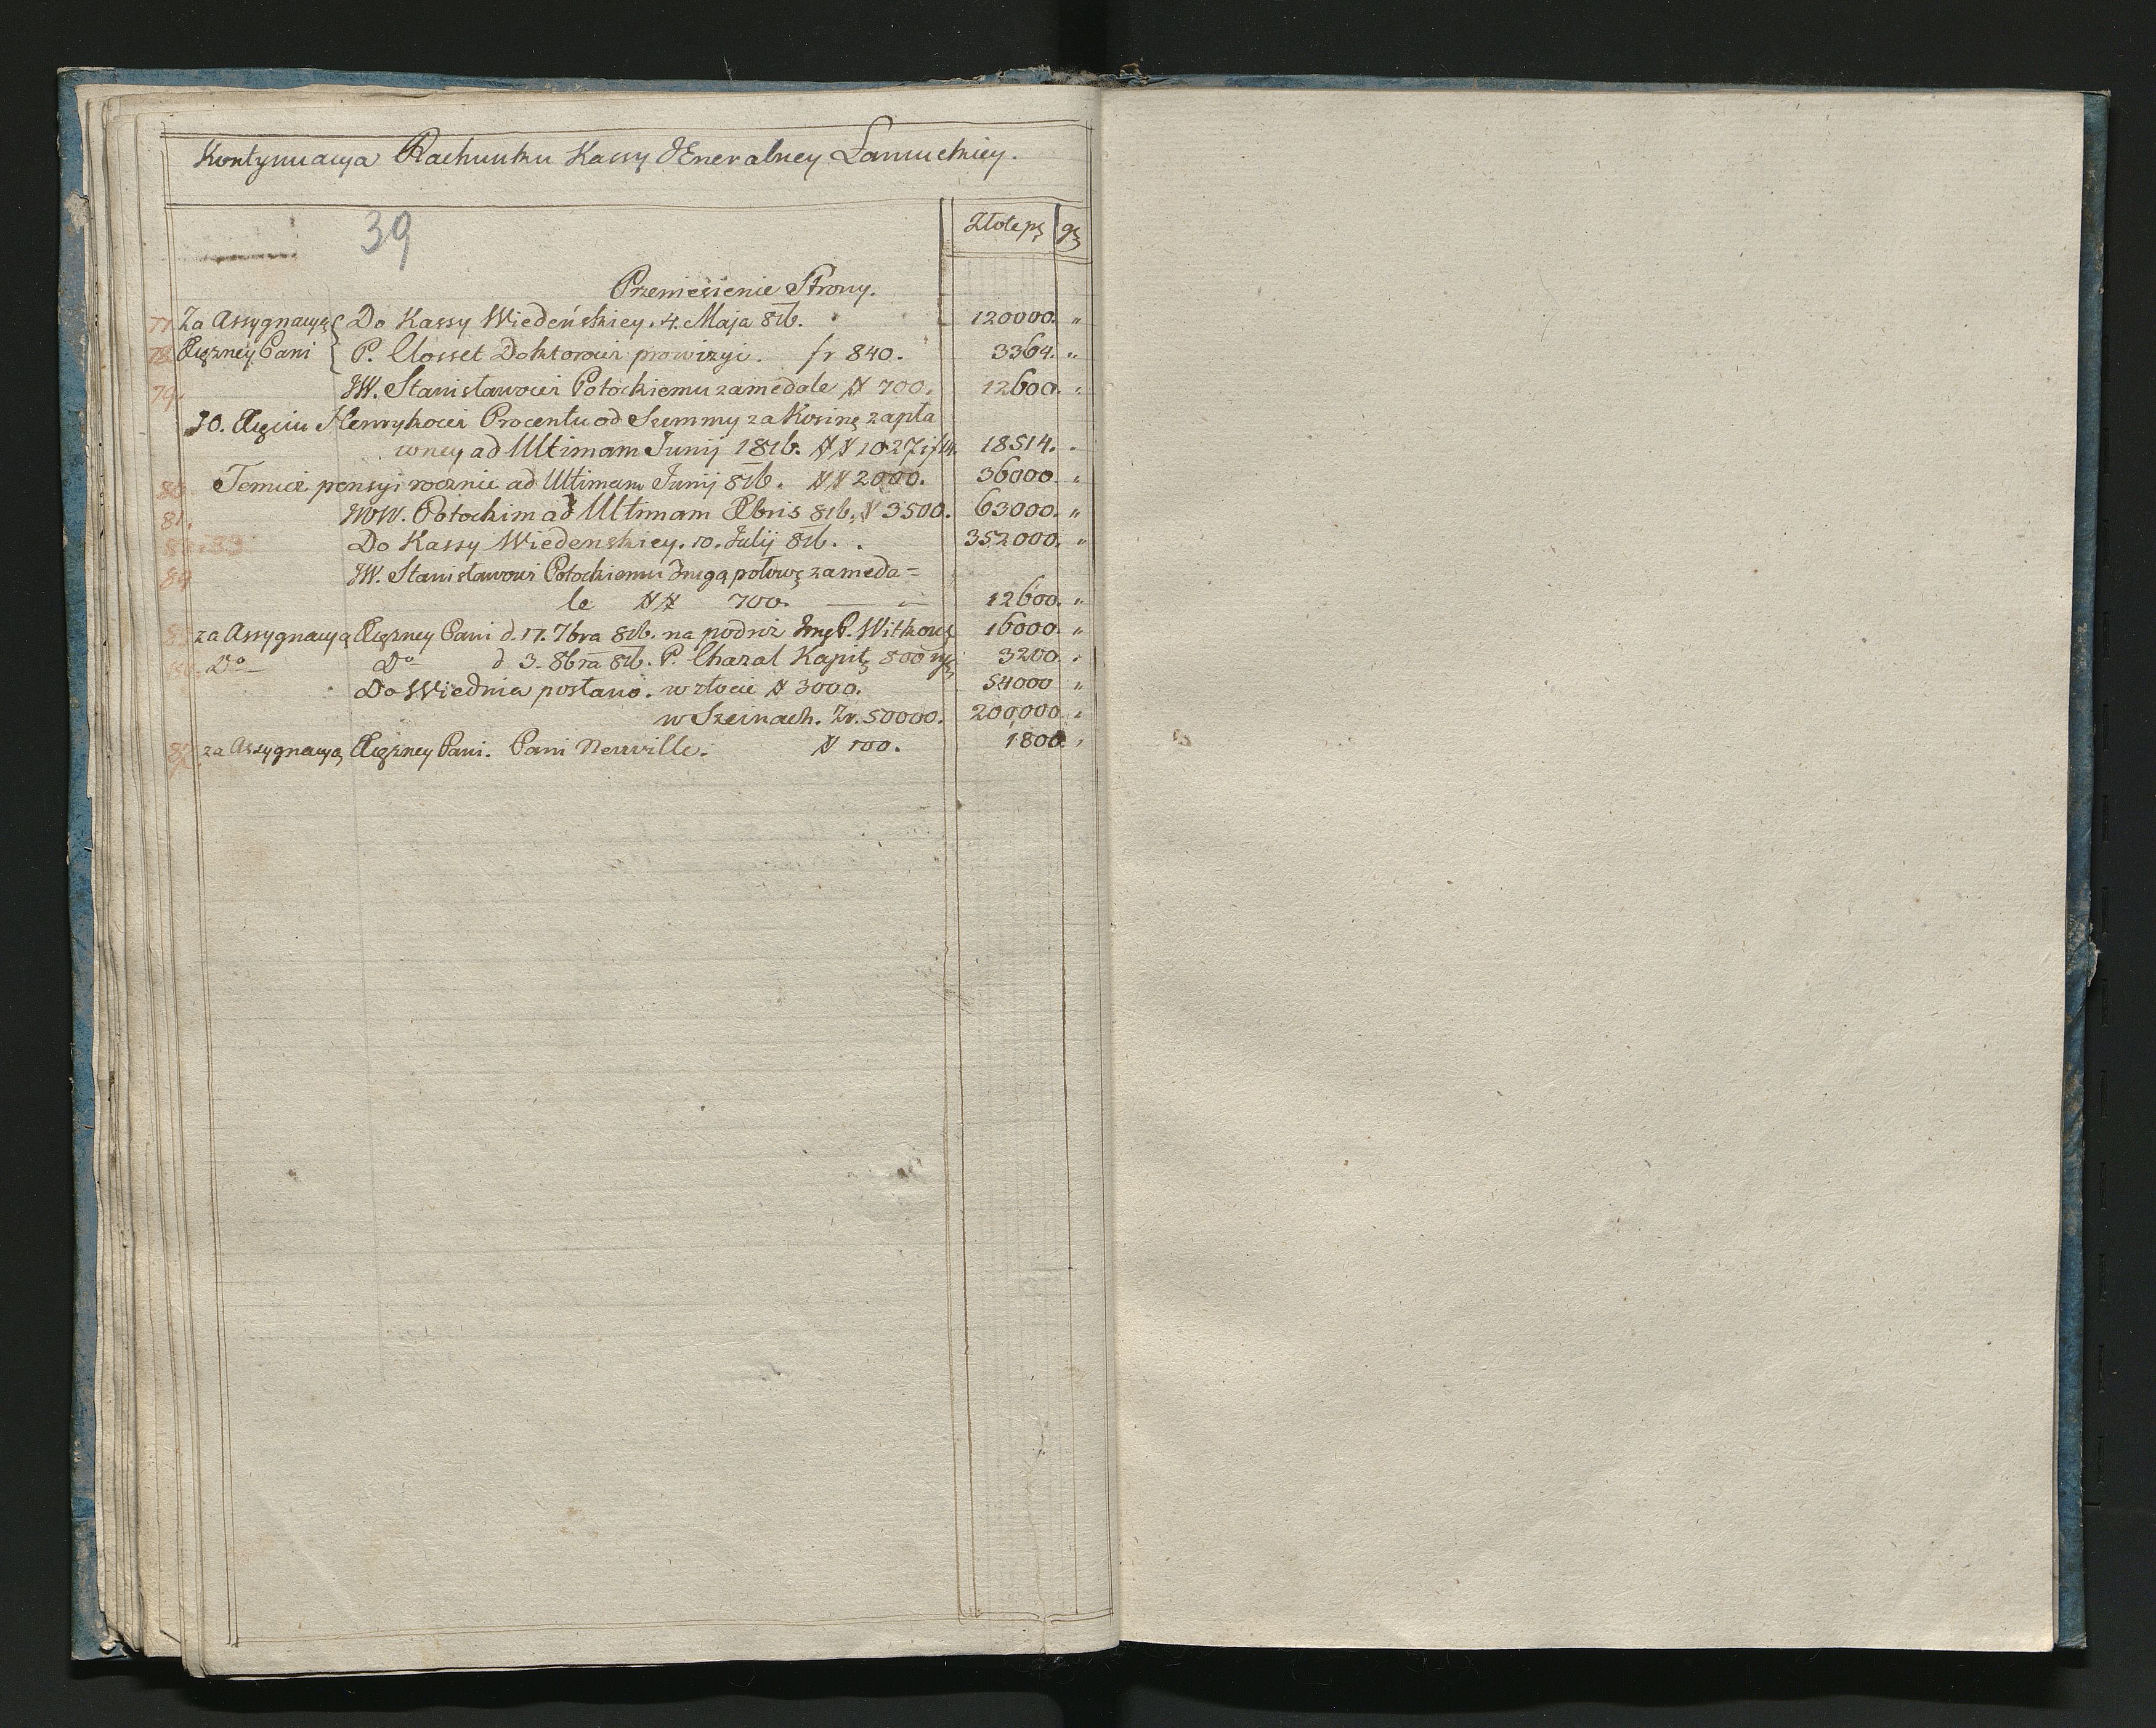 Kontynuacya Rachunku Kassy JEneralney Łancuckiey.
39
Złote pş gş
Przeniesienie Strony.
77 Za Assygnacyą Do Kassy Wiedeńskiey. 4. Maja 816. 120000. "
78 Xiężney Pani P. Closset Doktorowi prowizyi. fr 840. 3364. "
79. JW. Stanisławowi Potockiemu za medale # 700. 12600. "
30. Xięciu Henrykowi Procentu od Summy za Kosinę zapła
wney ad Ultimam Junij 1816. ## 1027 18514. "
80 Temuż pensyi rocznie ad Ultimam Junij 816. ## 2000. 36000 "
81. WW. Potockim ad Ultimam Xbris 816. # 3500. 63000. "
82. 83 Do Kassy Wiedenskiey. 10. Julij 816. 352000. "
84 JW. Stanisławowi Potockiemu drugą połowę za meda=
le ## 700. 12600. "
85 za Assygnacyą Xiężney Pani d. 17. 7bra 816. na podroż P. Witkow 16000. "
86. Do Do d 3. 8bra 816. P. Chazal Kapit 800 3200 "
Do Wiednia posłano. w złocie # 3000. 54000 "
w Szeinach. Zr. 50000. 200,000. "
87 za Assygnacyą Xiężney Pani. Pani Neuville. # 100. 1800. "